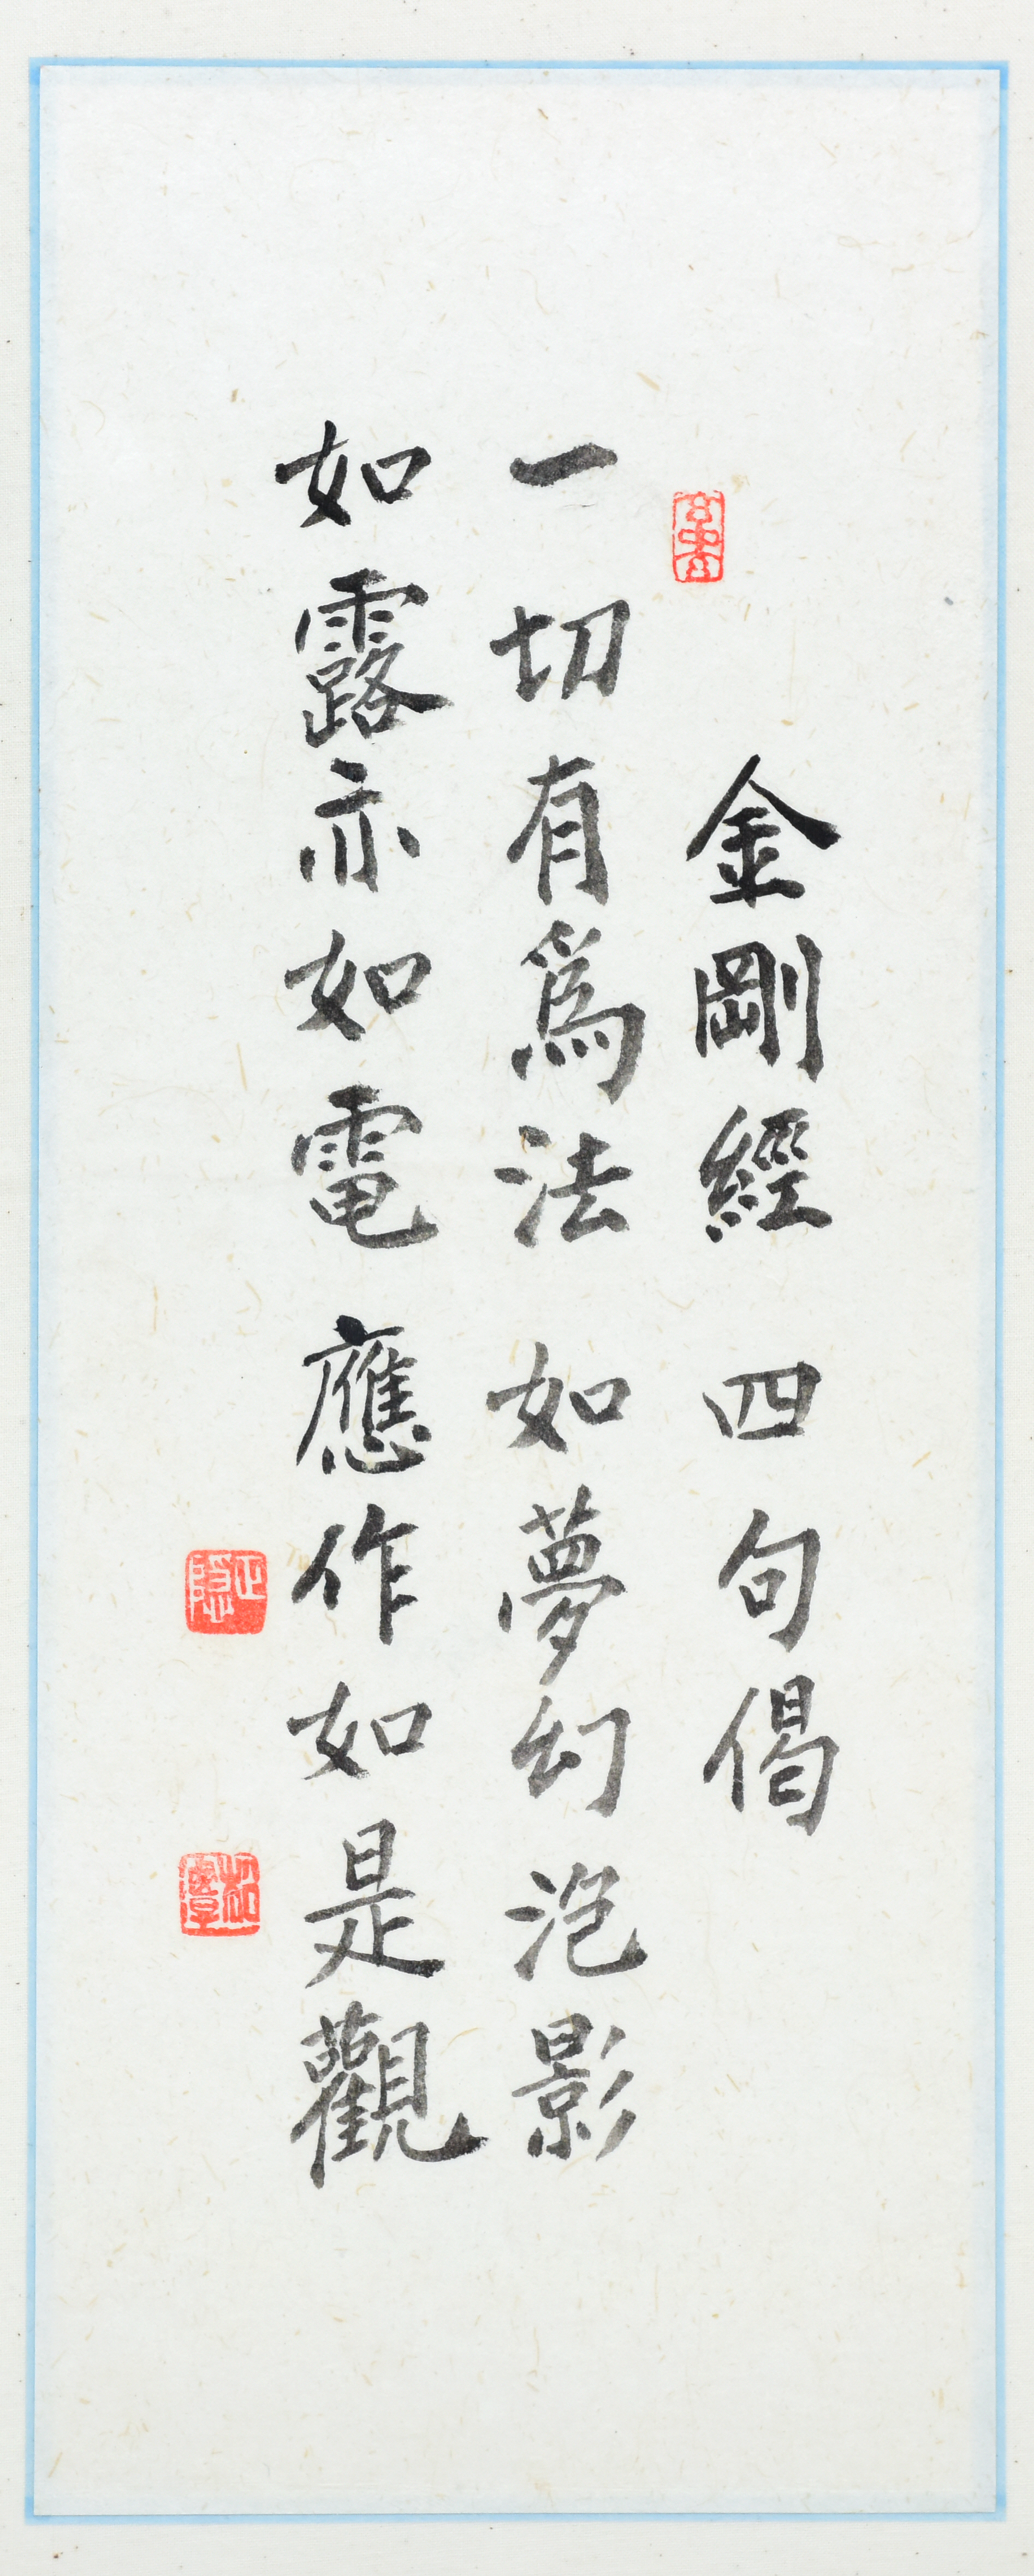 金剛經 四句偈
一切有爲法 如夢幻泡影
如露亦如電 應作如是觀